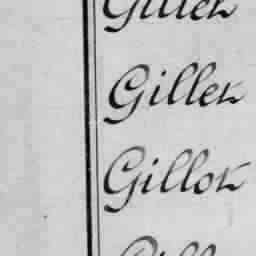 Gillek
Gillek
Gillok